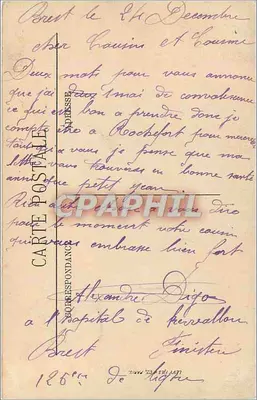 Brest le 24 Decembre
cher Cousins et Cousine
Deux mots pour vous annonce
que j'ai deux mai de convalescence
ce qui est bon a prendre donc je
compte être a Rochefort pour
vous je pense que ma
lettre vous trouveras en bonne santé
que petit jean
Rien autre
pour le moment votre cousin
qui vous embrasse bien fort
Alexandre Digo
a l'hopital de
Brest Finistere
125em de ligne
CARTE POSTALE
CORRESPONDANCE
ADRESSE
CPAPHIL